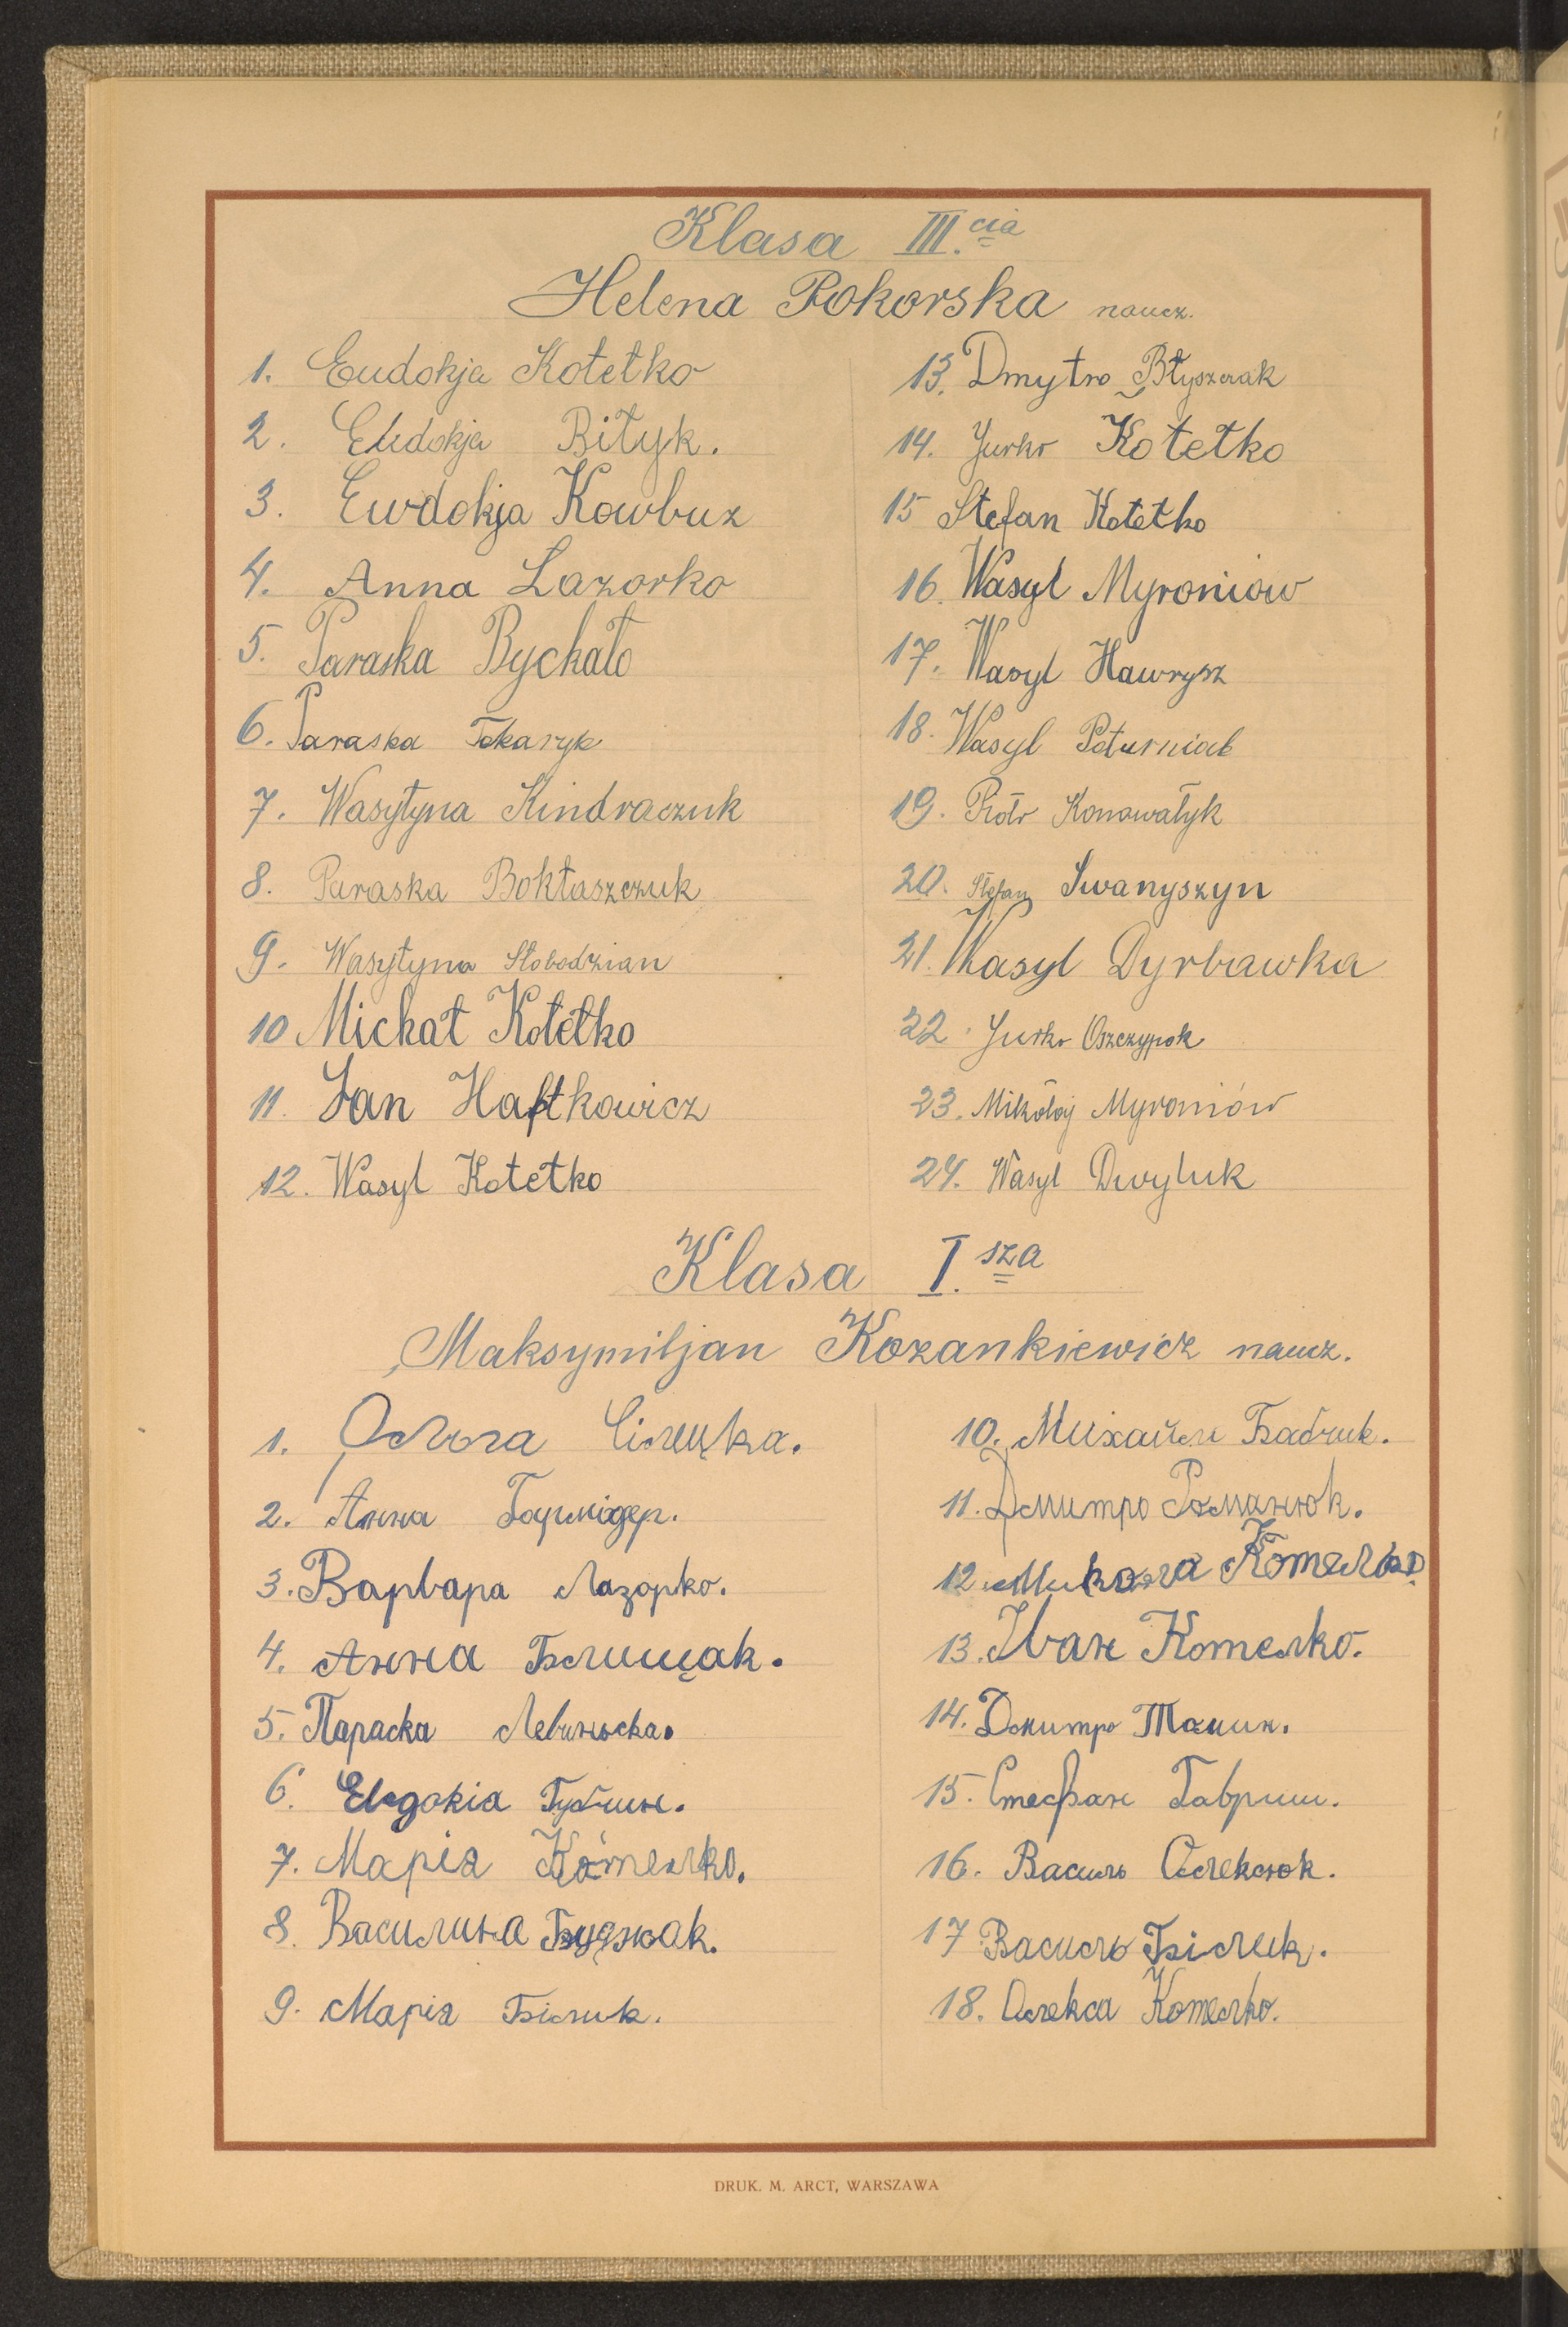 Klasa III.cia
Helena Pokorska naucz.
1. Eudokja Kotełko
2. Eudokja Biłyk.
3. Ewdokja Kowbuz
4. Anna Lazorko
5. Paraska Bychało
6. Paraska Tokaryk
7. Wasyłyna Kindraczuk
8. Paraska Bokłaszczuk
9. Wasyłyna Słobodzian
10 Michał Kotełko
11. Jan Haftkowicz
12. Wasyl Kotełko
13. Dmytro Błyszczak
14. Jurko Kotełko
15 Stefan Kotełko
16. Wasyl Myroniow
17. Wasyl Hawrysz
18. Wasyl Poturniak
19. Piotr Konowałyk
20. Stefan Iwanyszyn
21. Wasyl Dyrbawka
22. Jurko Oszczypok
23. Mikołaj Myroniów
24. Wasyl Dwyluk
Klasa I.sza
Maksymiljan Kozankiewicz naucz.
1. Ольга Сілецка.
2. Анна
3. Варвара Лазорко.
4. Анна Блищак.
5. Параска Левинська.
6. Евдокія
7. Марія Котелко.
8. Василина Будзюак.
9. Марія Білик.
10. Михайло Бабчик.
11. Дмитро Романюк.
12. Микола Котелко
13. Іван Котелко.
14. Дмитро Тацин.
15. Стефан Гавриш.
16. Василь Олексюк.
17 Василь Білик.
18. Олекса Котелко.
DRUK. M. ARCT, WARSZAWA